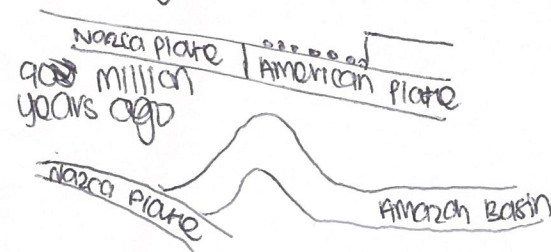 Nazca Plate
American Plate
900 million
years ago
Nazca Plate
Amazon Basin